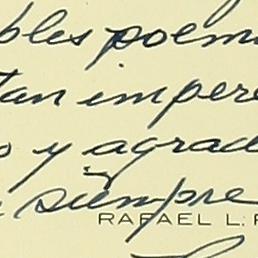 bles poem
tan impere
o y agrad
siempre
RAFAEL L. F